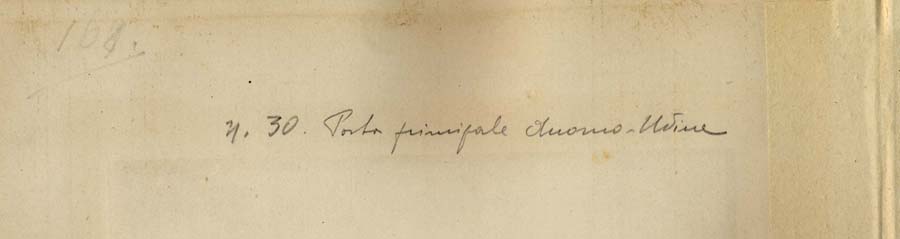 168.
n. 30. Porta principale duomo - Udine